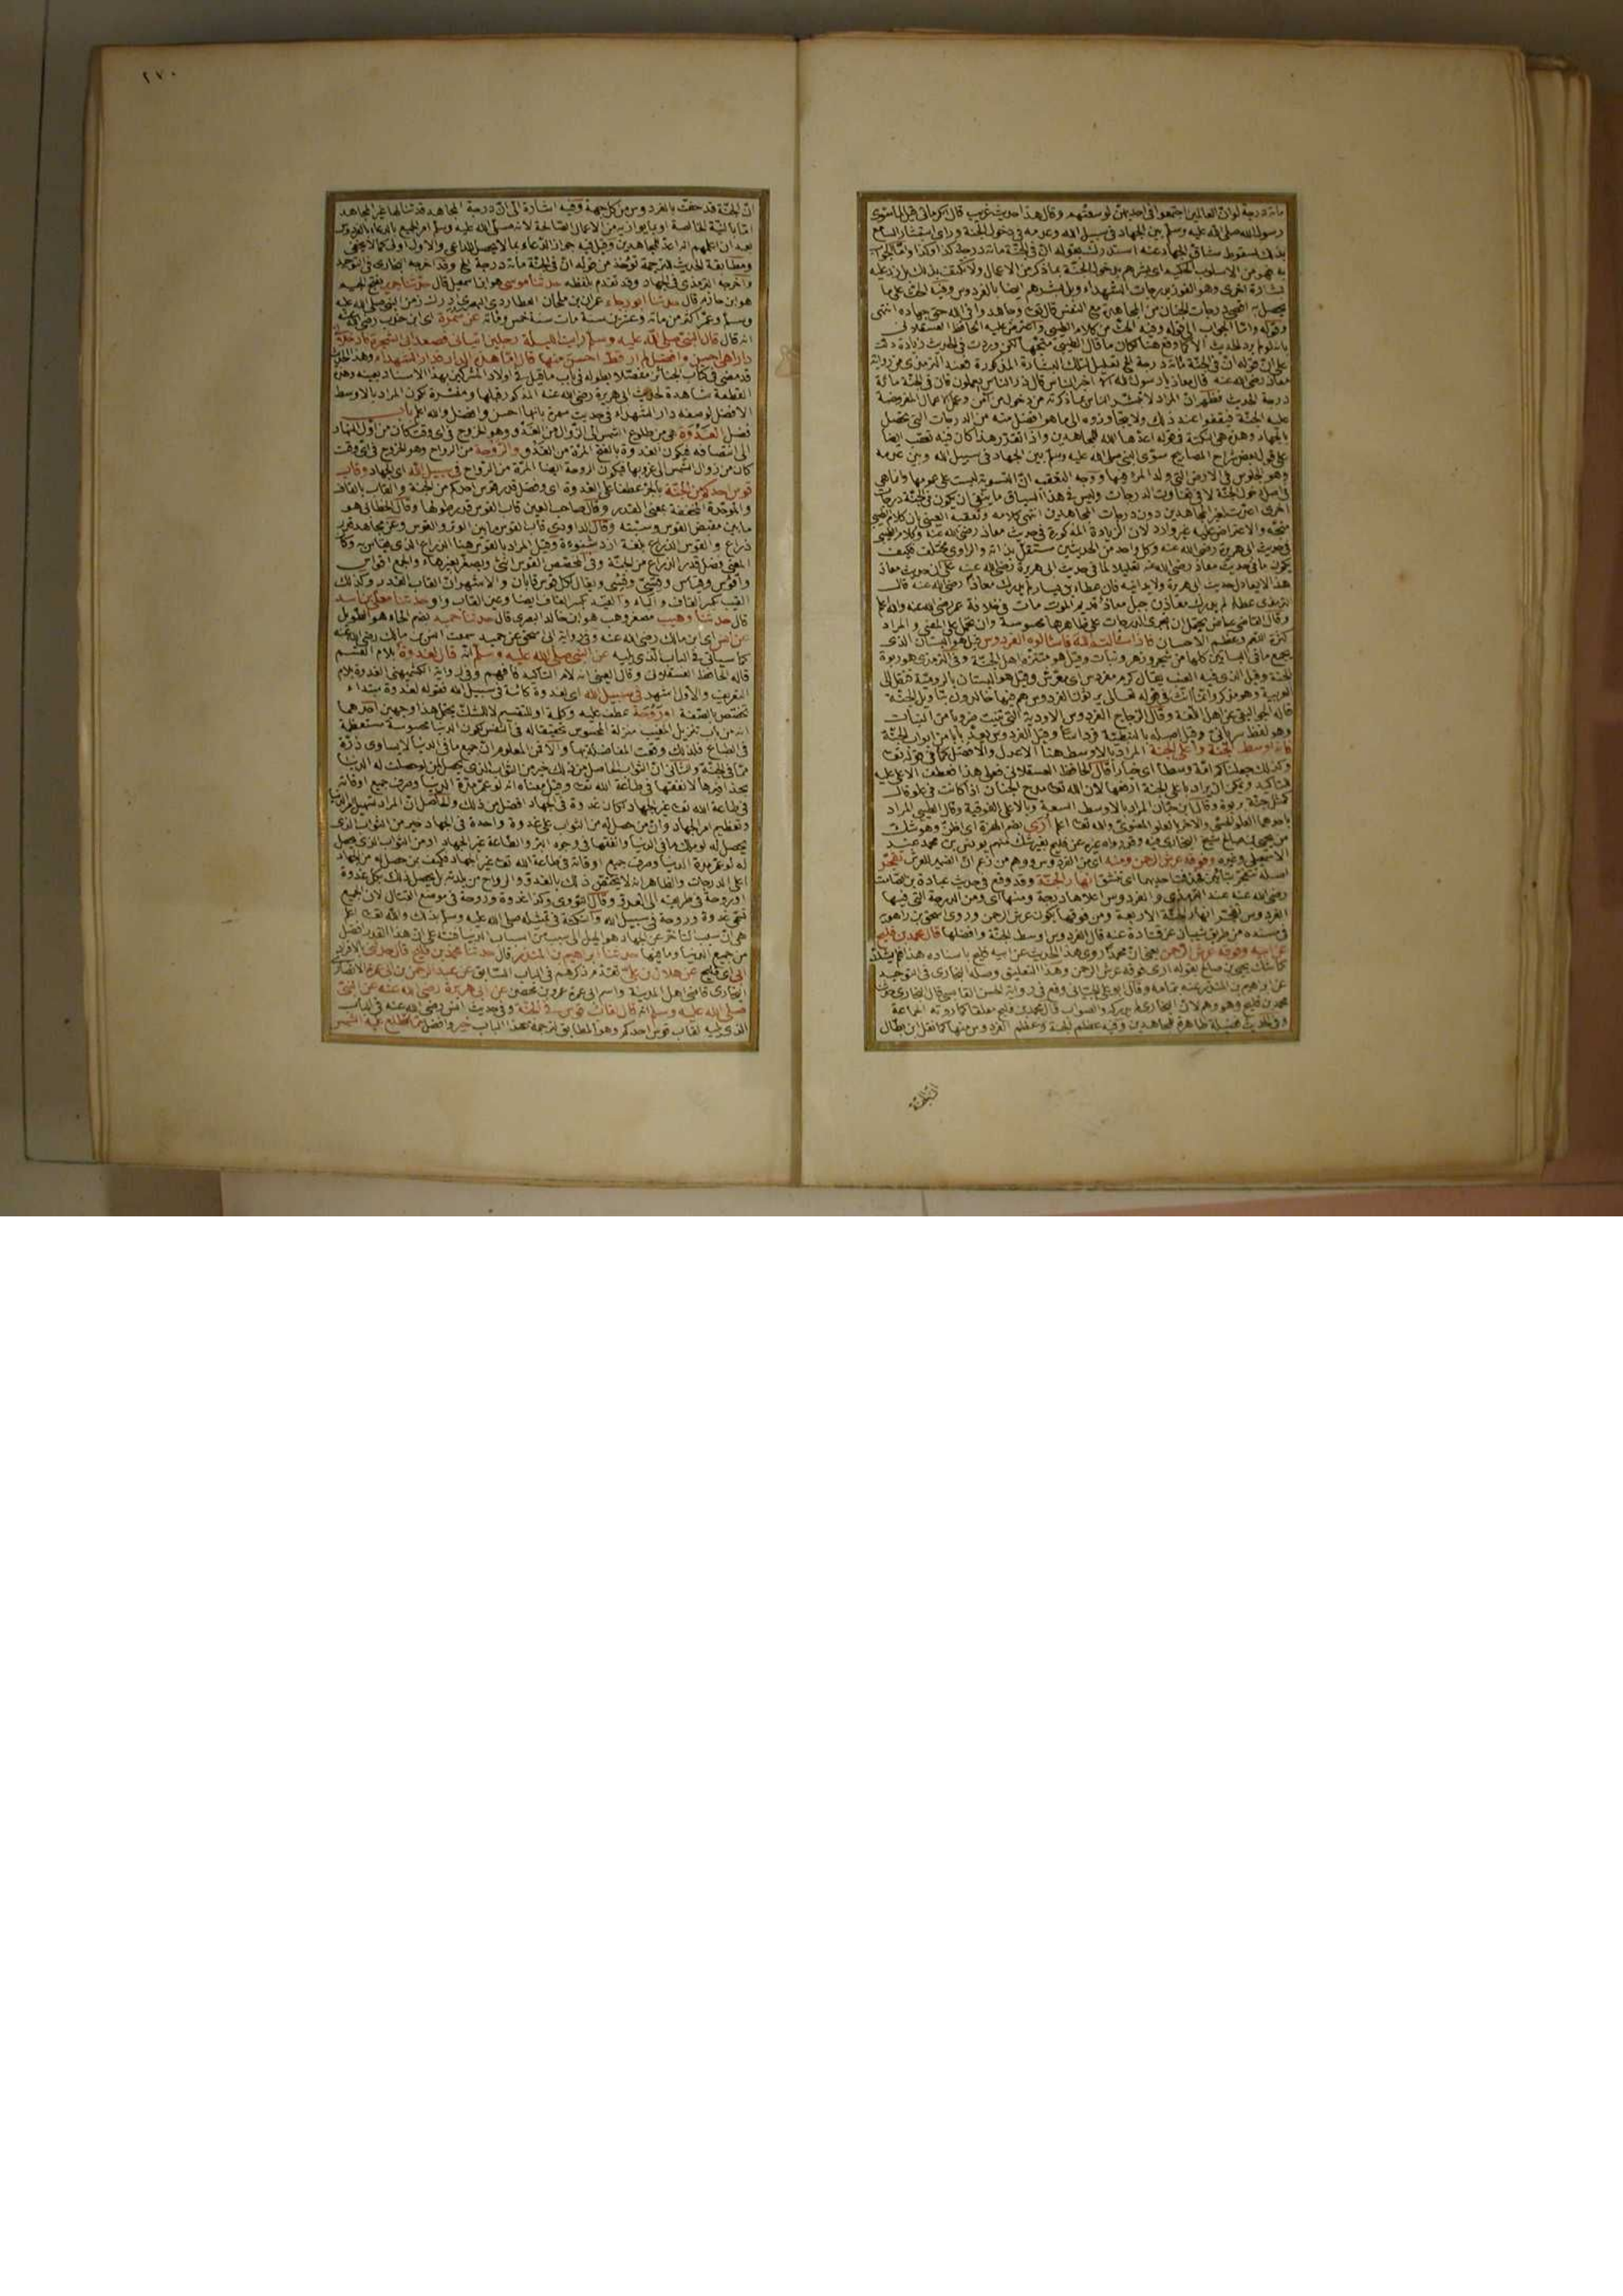 مائة درجة لو انّ العالمين اجتمعوا في احديهنّ لوسعتهم وقال هذا حديث غريب قال الكرماني قيل لما سوّى
رسول الله صلى الله عليه وسلم بين الجهاد في سبيل الله وعدمه في دخول الجنة وراى استبشار السامع
بذلك لسقوط مشاق الجهاد عنه استدرك بقوله انّ في الجنّة مائة درجة كذا وكذا وامّا الجواب
به فهو من الاسلوب الحكيم اى بشرهم بدخول الجنّة بما ذكر من الاعمال ولا تكتف بذلك بل زد عليه
بشارة اخرى وهو الفوز بدرجات الشهداء وبل بشرهم ايضا بالفردوس وفيه الحث على ما
يحصل به اقصى درجات الجنان من المجاهدة مع النفس قال تعالى وجاهدوا في الله حق جهاده انتهى
وقوله وامّا الجواب الى قوله وفيه الحث من كلام الطيبى واعترض عليه الحافظ العسقلانى
بانه لو لم يرد الحديث الا كما وقع هنا لكان ما قال الطيبى متجها لكن وردت في الحديث زيادة دلت
على انّ قوله انّ في الجنّة مائة درجة الخ تعليل لترك البشارة المذكورة فعند الترمذى من رواية
معاذ رضى الله عنه قال معاذ يا رسول الله الا اخبر الناس قال ذر الناس يعملون فان في الجنّة مائة
درجة الحديث فظهر انّ المراد لا تبشر الناس بما ذكرته من دخول من آمن وعمل الاعمال المفروضة
عليه الجنّة فيقفوا عند ذلك ولا يتجاوزوه الى ما هو افضل منه من الدرجات التى تحصل
بالجهاد وهذه هى النكتة في قوله اعدّها الله للمجاهدين واذا تقرّر هذا كان فيه تعقب ايضا
على قول بعض شراح المصابيح سوّى النبي صلى الله عليه وسلم بين الجهاد في سبيل الله وبين عدمه
وهو الجلوس في الارض التى ولد المرء فيها ووجه التعقيب انّ التسوية ليست على عمومها وانما هى
في اصل دخول الجنّة لا في تفاوت الدرجات وليس في هذا السياق ما ينفى ان يكون في الجنّة درجات
اخرى اعدّت لغير المجاهدين دون درجات المجاهدين انتهى كلامه وتعقبه العينى بان كلام الطيبى
متجه والاعتراض عليه غير وارد لان الزيادة المذكورة في حديث معاذ رضى الله عنه وكلام الطيبى
في حديث ابى هريرة رضى الله عنه وكل واحد من الحديثين مستقل بذاته والراوى مختلف فكيف
يكون ما في حديث معاذ رضى الله عنه تعليلا لما في حديث ابى هريرة رضى الله عنه على ان حديث معاذ
هذا لا يعادل حديث ابى هريرة ولا يدانيه فان عطاء بن يسار لم يدرك معاذا رضى الله عنه قال
الترمذى عطاء لم يدرك معاذ بن جبل معاذ قديم الموت مات في خلافة عمر رضى الله عنه والله اعلم
وقال القاضى عياض يحتمل ان يجرى الدرجات على ظاهرها محسوسة وان تحمل على المعنى والمراد
كثرة النعم وعظم الاحسان فاذا سألتم الله فاسألوه الفردوس قيل هو البستان الذى
يجمع ما في البساتين كلها من شجر وزهر ونبات وقيل هو متنزه اهل الجنّة وفي الترمذى هو ربوة
الجنة وقيل الذى فيه العنب يقال كرم مفردس اى معرّش وقيل هو البستان بالرومية فنقل الى
العربية وهو مذكر وانما انث في قوله تعالى يرثون الفردوس هم فيها خالدون بتأويل الجنّة
قاله الجواليقى عن اهل اللغة وقال الزجاج الفردوس الاودية التى تنبت ضروبا من النبات
وهو لفظ سريانى وقيل اصله بالنبطية فرداسا وقيل الفردوس يعدّ بابا من ابواب الجنّة
فانه اوسط الجنّة واعلى الجنّة المراد بالاوسط هنا الاعدل والافضل كما في قوله تعالى
وكذلك جعلناكم امّة وسطا اى خيارا قال الحافظ العسقلانى فعلى هذا فعطف الاعلى عليه
للتأكيد ويمكن ان يراد باعلى الجنة ارفعها لان الله تعالى مدح الجنان اذا كانت في علو فقال
كمثل جنّة بربوة وقال ابن حبّان المراد بالاوسط السعة وبالاعلى الفوقية وقال الطيبى المراد
باحدهما العلو الحسّى والاخر العلو المعنوى والله تعالى اعلم اُرى بضم الهمزة اى اظن وهو شك
من يحيى بن صالح شيخ البخارى فيه وقد رواه غيره عن فليح بغير شك منهم يونس بن محمد عند
الاسمعيلى وغيره وفوقه عرش الرحمن ومنه اى من الفردوس ووهم من زعم انّ الضمير للعرش تفجّر
اصله تتفجر بتائين فحذفت احديهما اى تنشق انهار الجنّة وقد وقع في حديث عبادة بن الصامت
رضى الله عنه عند الترمذى والفردوس اعلاها درجة ومنها اى ومن الدرجة التى فيها
الفردوس تفجر انهار الجنّة الاربعة ومن فوقها يكون عرش الرحمن وروى اسحق بن راهويه
في مسنده من طريق شيبان عن قتادة عنه قال الفردوس اوسط الجنّة وافضلها قال محمد بن فليح
عن ابيه وفوقه عرش الرحمن يعنى انّ محمدا روى هذا الحديث عن ابيه فليح باسناده هذا فلم يشك
كما شك يحيى بن صالح بقوله ارى فوقه عرش الرحمن وهذا التعليق وصله البخارى في التوحيد
عن ابراهيم بن المنذر عنه بتمامه وقال ابو على الجيّانى وقع في رواية الحسن القابسى قال البخارى حدثنا
محمد بن فليح وهو وهم لانّ البخارى لم يدركه والصواب قال محمد بن فليح معلقا كما روته الجماعة
وفي الحديث فضيلة ظاهرة للمجاهدين وفيه عظم الجنة وعظم الفردوس منها كما نقل ابن بطّال
انّ الجنّة
٢٧٠
انّ الجنّة قد حفّت بالفردوس من كل جهة وفيه اشارة الى انّ درجة المجاهد قد ينالها غير المجاهد
امّا بالنيّة الخالصة او بما يوازيه من الاعمال الصالحة لانه صلى الله عليه وسلم امر الجميع بالدعاء بالفردوس
بعد ان اعلمهم انه اعدّ للمجاهدين وقيل فيه جواز الدعاء بما لا يحصل للداعى والاول اولى كما لا يخفى
ومطابقة الحديث للترجمة تؤخذ من قوله انّ في الجنّة مائة درجة الخ وقد اخرجه البخارى في التوحيد
واخرجه الترمذى في الجهاد وقد تقدم بلفظه حدثنا موسى هو ابن اسمعيل قال حدثنا جرير بفتح الجيم
هو ابن حازم قال حدثنا ابو رجاء عمران بن ملحان العطاردى البصرى ادرك زمن النبي صلى الله عليه
وسلم وعمّر اكثر من مائة وعشرين سنة مات سنة خمس ومائة عن سمرة اى ابن جندب رضى الله عنه
انه قال قال النبي صلى الله عليه وسلم رايت الليلة رجلين اتيانى فصعدا بى الشجرة فادخلانى
دارا هى احسن وافضل لم ار قط احسن منها قال امّا هذه الدار فدار الشهداء وهذا الحديث
قد مضى في كتاب الجنائز مفصّلا بطوله في باب ما قيل في اولاد المشركين بهذا الاسناد بعينه وهذه
القطعة شاهدة لحديث ابى هريرة رضى الله عنه المذكور قبلها ومفسّرة لكون المراد بالاوسط
الافضل لوصفه دار الشهداء في حديث سمرة بانها احسن وافضل والله اعلم باب
فضل الغدوة هى من طلوع الشمس الى الزوال من الغدو وهو الخروج في اى وقت كان من اول النهار
الى انتصافه فيكون الغدوة بالفتح المرّة من الغدو والروحة من الرواح وهو الخروج في اى وقت
كان من زوال الشمس الى غروبها فيكون الروحة ايضا المرّة من الرواح في سبيل الله اى الجهاد وقاب
قوس احدكم من الجنّة بالجرّ عطفا على الغدوة اى وفضل قدر قوس احدكم من الجنة والقاب بالقاف
والموحّدة المخففة بمعنى القدر وقال صاحب العين قاب القوس قدر طولها وقال الخطابى هو
ما بين مقبض القوس وسيته وقال الداودى قاب القوس ما بين الوتر والقوس وعن مجاهد قدر
ذراع والقوس الذراع بلغة ازد شنوءة وقيل المراد بالقوس هنا الذراع الذى يقاس به وكأنّ
المعنى فضل قدر الذراع من الجنّة وفي المخصص القوس انثى وتصغّر بغير هاء والجمع اقواس
واقوس وقياس وقسىّ وقسىّ ويقال لكل قوس قابان والاشهر انّ القاب القدر وكذلك
القيب بكسر القاف والياء والقيد بكسر القاف ايضا وعين القاب واو حدثنا معلّى بن اسد
قال حدثنا وهيب مصغر وهب هو ابن خالد البصرى قال حدثنا حميد بضم الحاء هو الطويل
عن انس اى ابن مالك رضى الله عنه وفي رواية ابى اسحق عن حميد سمعت انس بن مالك رضى الله عنه
كما سيأتى في الباب الذى يليه عن النبي صلى الله عليه وسلم انّه قال لغدوة بلام القسم
قاله الحافظ العسقلانى وقال العينى انه لام التاكيد فافهم وفي رواية الكشميهنى الغدوة بلام
التعريف والاول اشهر في سبيل الله اى لغدوة كائنة في سبيل الله فقوله لغدوة مبتداء
تخصّص بالصّفة او روحة عطف عليه وكلمة او للتقسيم لا للشك يحتمل هذا وجهين احدهما
انه من باب تنزيل المغيب منزلة المحسوس تحقيقا له في النفس لكون الدنيا محسوسة مستعظمة
في الطباع فلذلك وقعت المفاضلة بها والا فمن المعلوم ان جميع ما في الدنيا لا يساوى ذرّة
ممّا في الجنّة والثانى انّ الثواب الحاصل من ذلك خير من الثواب الذى يحصل لمن لو حصلت له الدنيا
بحذافيرها لانفقها في طاعة الله تعالى وقيل معناه انه لو عمّر مدّة الدنيا وصرف جميع اوقاته
في طاعة الله تعالى غير الجهاد لكان غدوة في الجهاد افضل من ذلك والحاصل انّ المراد تسهيل امر الدنيا
وتعظيم امر الجهاد وانّ من حصل له من الثواب على غدوة واحدة في الجهاد خير من الثواب الذى
يحصل له لو ملك ما في الدنيا وانفقها في وجوه البرّ والطاعة غير الجهاد او من الثواب الذى يحصل
له لو عمّر مدة الدنيا وصرف جميع اوقاته في طاعة الله تعالى غير الجهاد فكيف بمن حصل له من الجهاد
اعلى الدرجات والظاهر انه لا يختصّ ذلك بالغدو والرواح من بلدته بل يحصل ذلك بكل غدوة
او روحة في طريقه الى العدو وقال النووى وكذا غدوة وروحة في موضع القتال لان الجميع
تسمى غدوة وروحة في سبيل الله والنكتة في تمثيله صلى الله عليه وسلم بذلك والله تعالى اعلم
هى انّ سبب التأخر عن الجهاد هو الميل الى سبب من اسباب الدنيا فنبّه على انّ هذا القدر افضل
من جميع الدنيا وما فيها حدثنا ابراهيم بن المنذر قال حدثنا محمد بن فليح قال حدثنى بالافراد
ابى اى فليح عن هلال بن علىّ تقدّم ذكرهم في الباب السّابق عن عبد الرحمن بن ابى عمرة الانصارى
البخارى قاضى اهل المدينة واسم ابى عمرة عمرو بن محصن عن ابى هريرة رضى الله عنه عن النبىّ
صلّى الله عليه وسلّم انّه قال لقاب قوس في الجنّة وفي حديث انس رضى الله عنه في الباب
الذى يليه لقاب قوس احدكم وهو المطابق لترجمة هذا الباب خير وافضل ممّا تطلع عليه الشمس